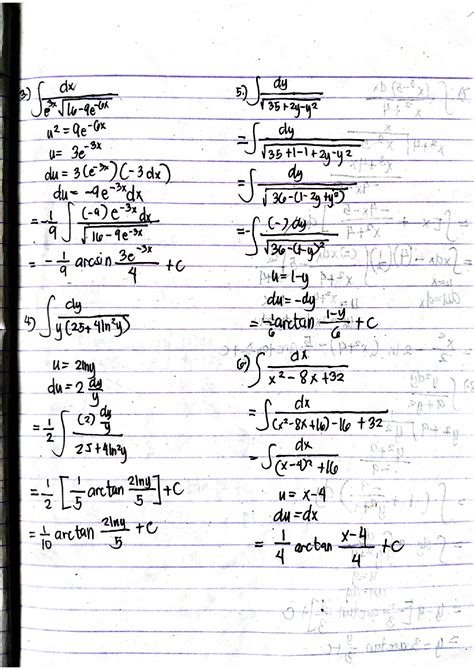 3) ∫ dx / e^3x √16-9e^-6x
u² = 9e^-6x
u = 3e^-3x
du = 3(e^-3x)(-3dx)
du = -9e^-3x dx
= -1/9 ∫ (-9)e^-3x dx / √16-9e^-3x
= -1/9 arcsin 3e^-3x / 4 + C
4) ∫ dy / y(25+4ln²y)
u = 2lny
du = 2 dy/y
= 1/2 ∫ (2) dy/y / 25+4ln²y
= 1/2 [1/5 arctan 2lny/5] + C
= 1/10 arctan 2lny/5 + C
5) ∫ dy / √35+2y-y²
= ∫ dy / √35+1-1+2y-y²
= ∫ dy / √36-(1-2y+y²)
= -∫ (-) dy / √36-(1-y)²
u = 1-y
du = -dy
= -1/6 arctan 1-y/6 + C
6) ∫ dx / x²-8x+32
= ∫ dx / (x²-8x+16)-16+32
= ∫ dx / (x-4)²+16
u = x-4
du = dx
= 1/4 arctan x-4/4 + C